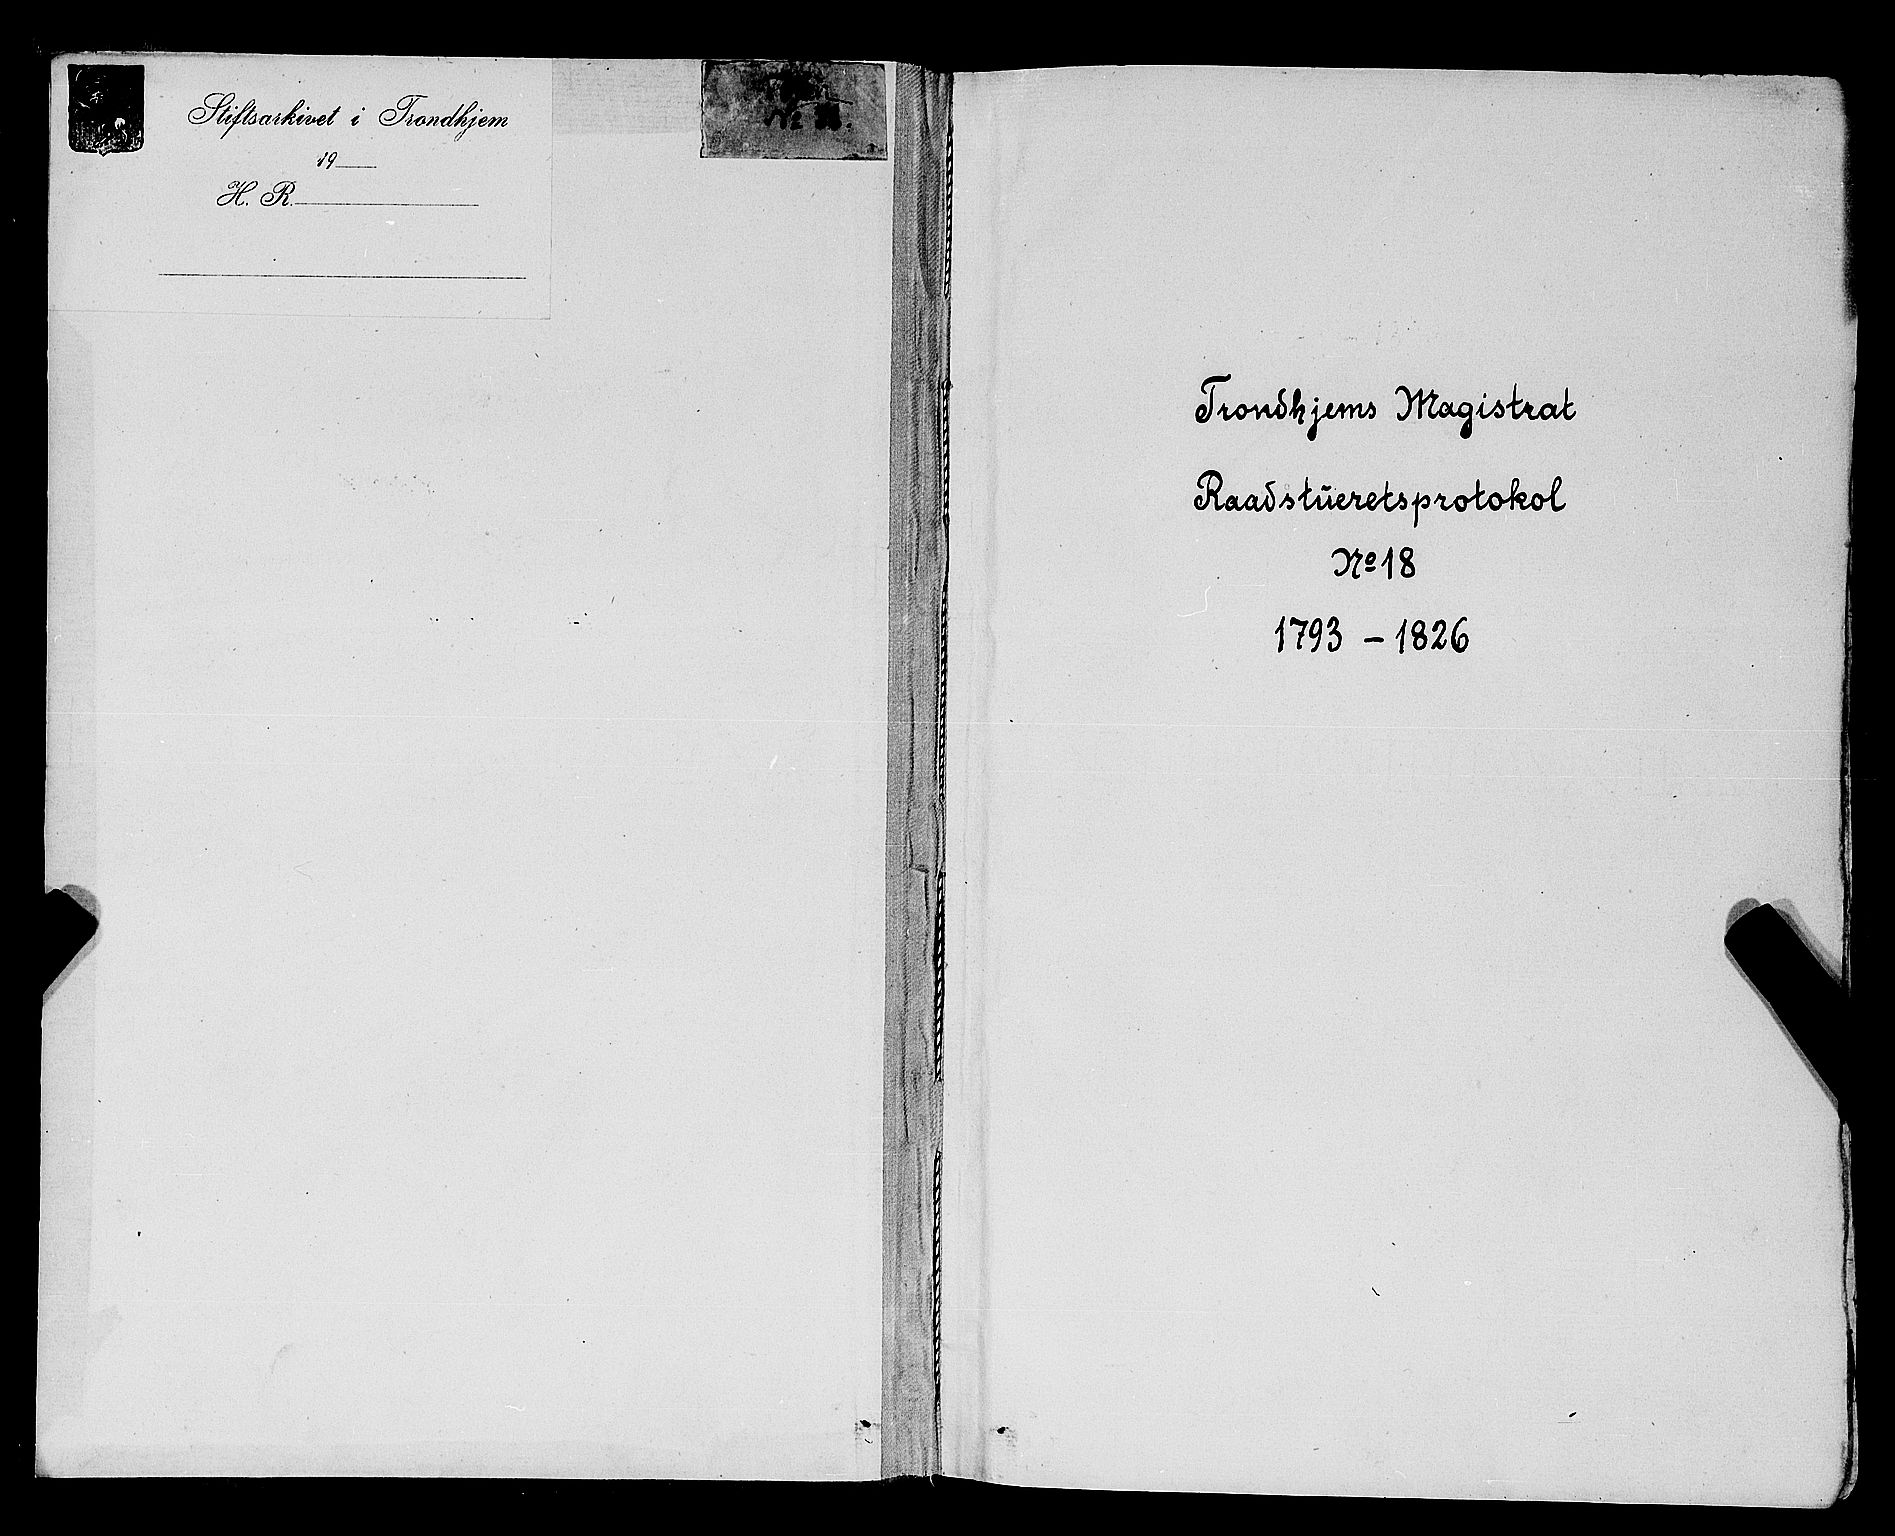 Stiftsarkivet i Trondhjem
19
H. R.
Trondhjems Magistrat
Raadstŭeretsprotokol
No 18
1793 – 1826